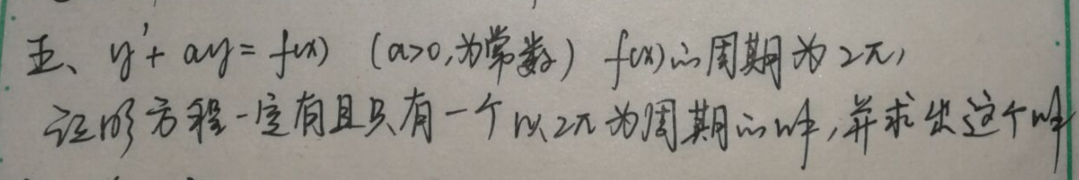 五、y′+ay=f(x) (a>0,为常数) f(x)的周期为2π,
证明方程一定有且只有一个以2π为周期的解,并求出这个解